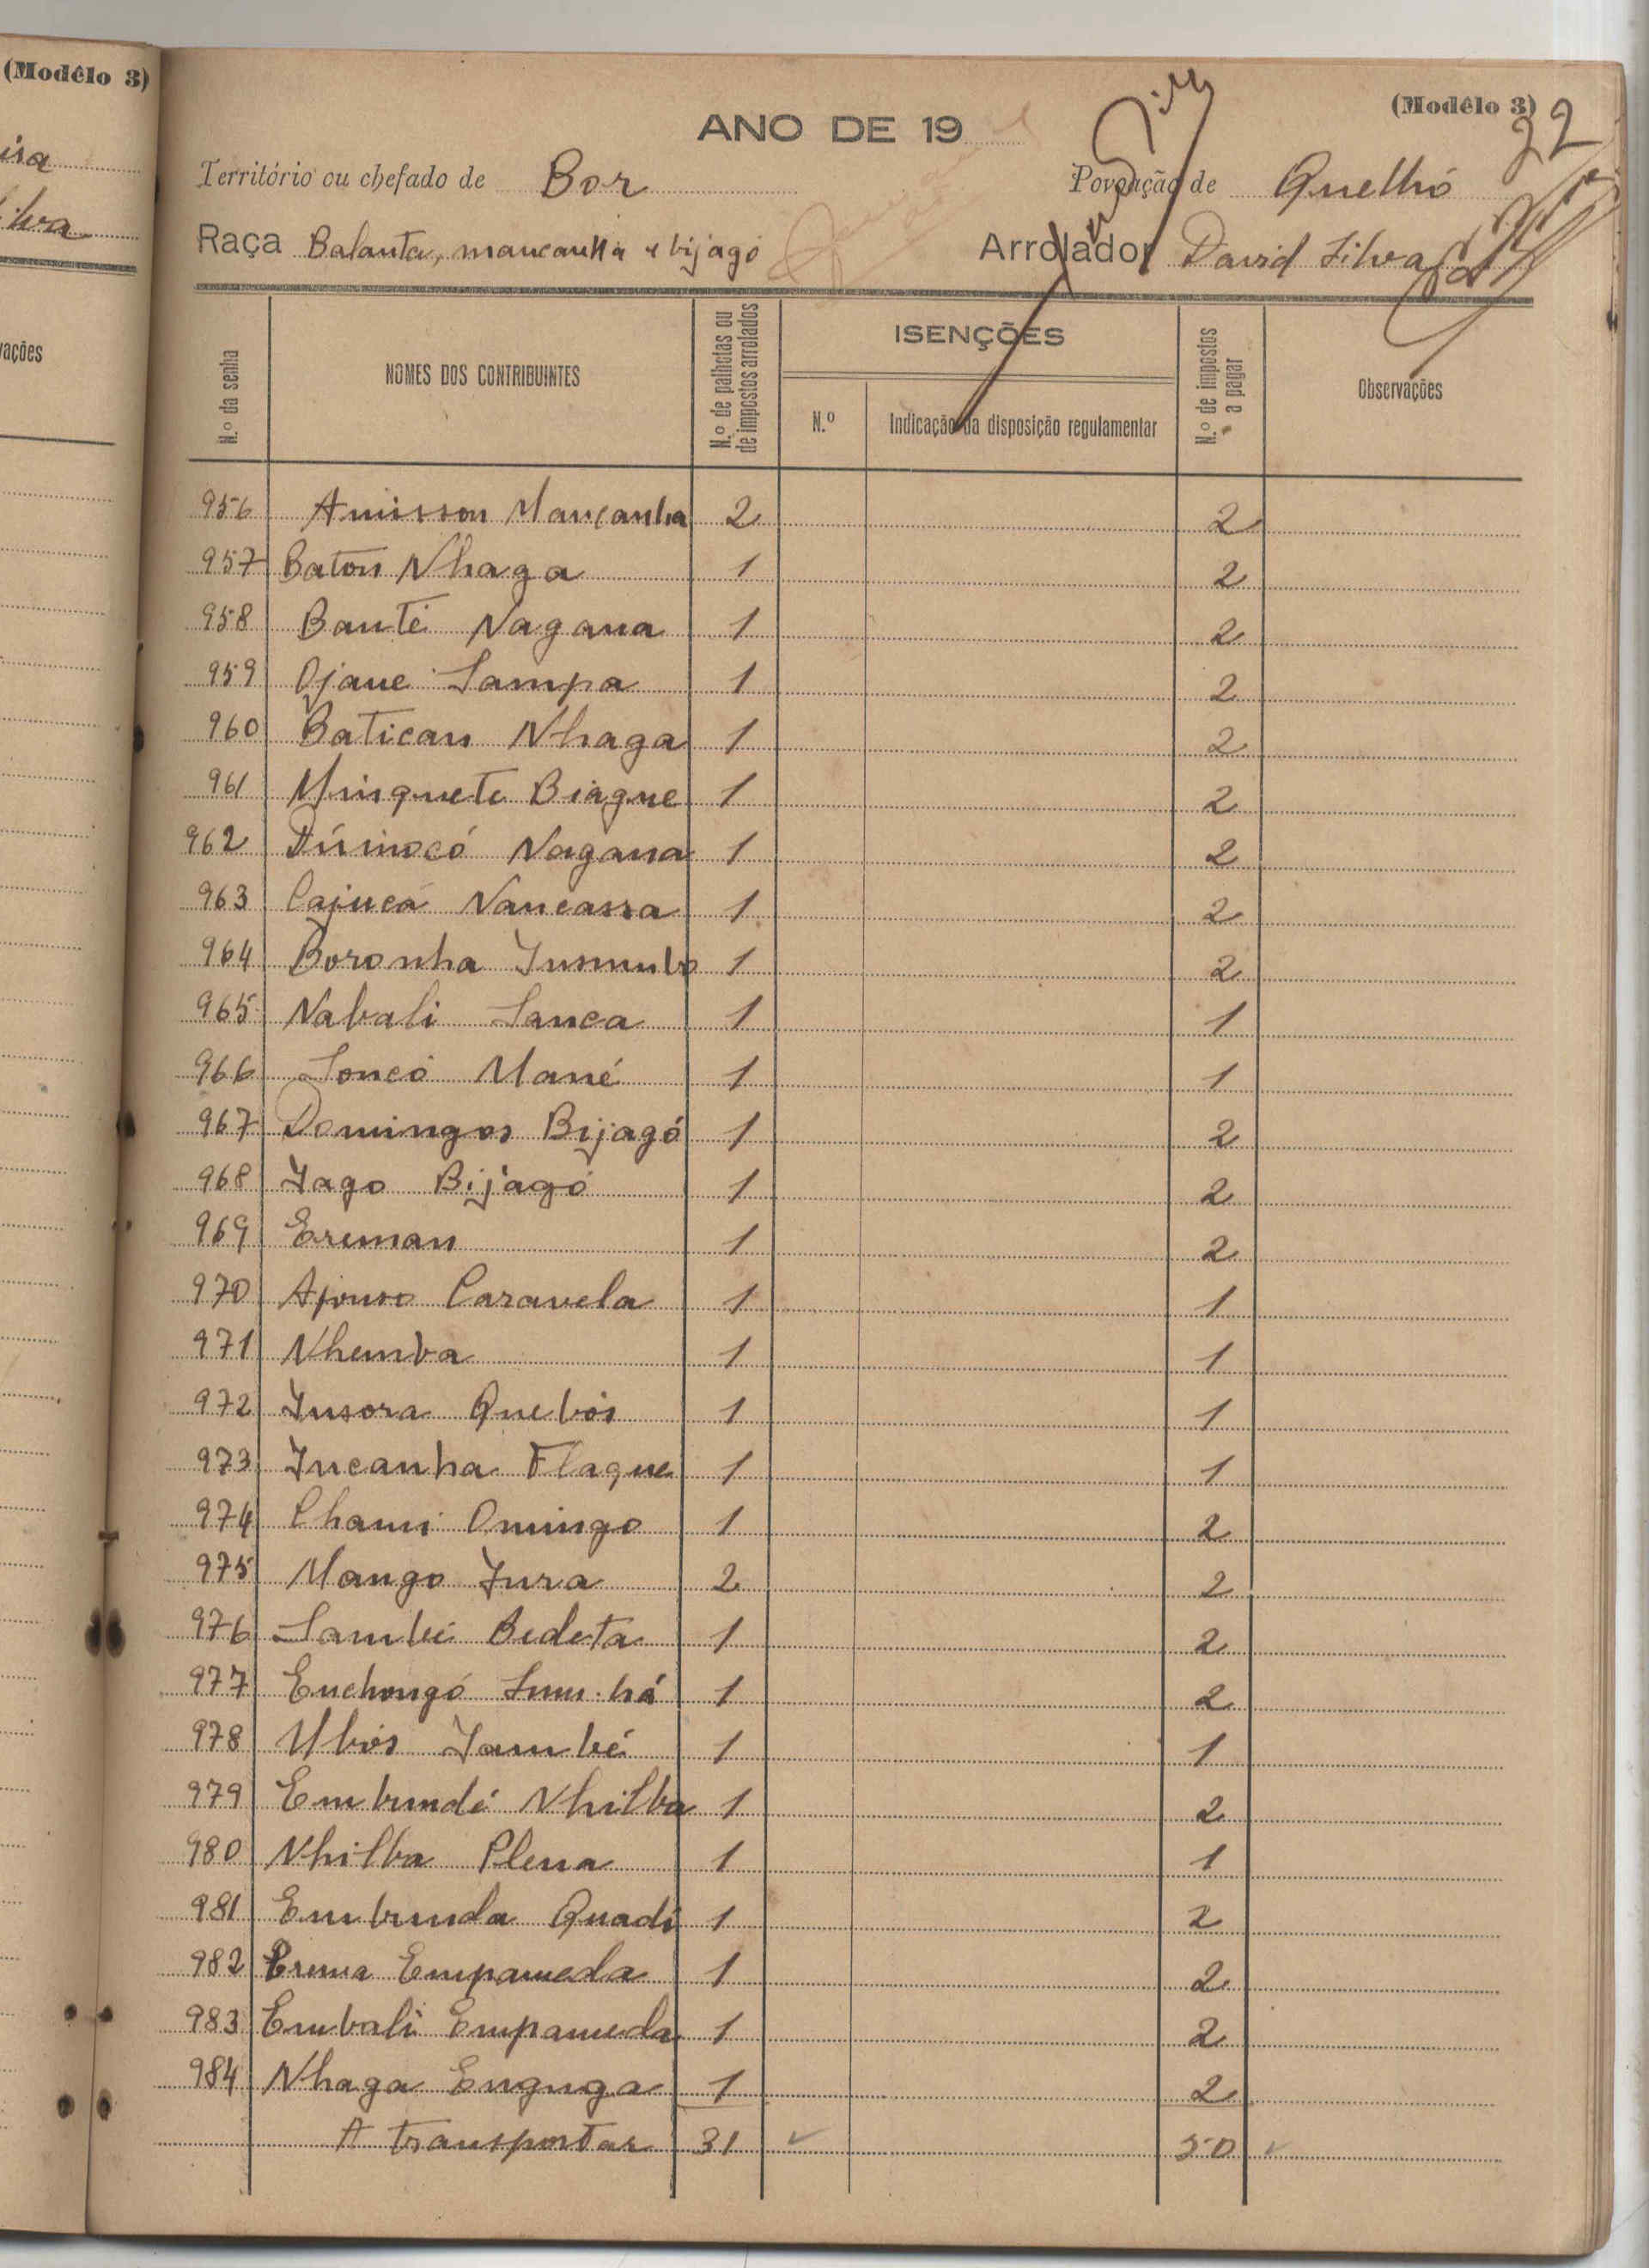 (Modêlo 3)
ira
ilva
vações
(Modêlo 3)
22
ANO DE 19
Território ou chefado de Bor Povoação de Quelhó
Raça Balanta, mancanha e bijagó Arrolador David Silva
N.º da senha
NOMES DOS CONTRIBUINTES
N.º de palhotas ou de impostos arrolados
ISENÇÕES
N.º
Indicação da disposição regulamentar
N.º de impostos a pagar
Observações
956 Amisson Mancanha 2 2
957 Baton Nhaga 1 2
958 Banté Nagana 1 2
959 Djane Sampa 1 2
960 Batican Nhaga 1 2
961 Minquete Biague 1 2
962 Nagana 1 2
963 Cajucá Nancassa 1 2
964 Boronha 1 2
965 Nabali Sanca 1 1
966 Soncó Mané 1 1
967 Domingos Bijagó 1 2
968 Iago Bijagó 1 2
969 Ereman 1 2
970 Caravela 1 1
971 Nhemba 1 1
972 Insora Quebós 1 1
973 Incanha Flaque 1 1
974 Chami Omingo 1 2
975 Mango Jura 2 2
976 Sambé Bedeta 1 2
977 Enchongó 1 2
978 1 1
979 Embundé Nhilba 1 2
980 Nhilba Plena 1 1
981 Embunda Quadi 1 2
982 Empameda 1 2
983 Embali Empameda 1 2
984 Nhaga Enguga 1 2
A transportar 31 50